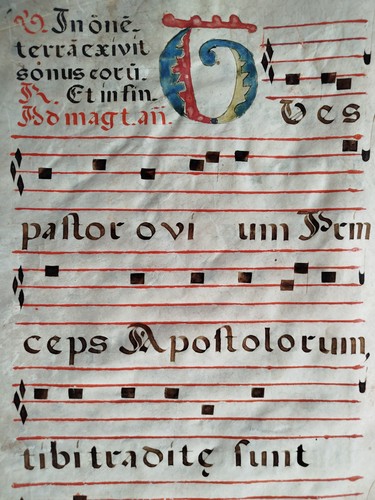 V. In õnẽ
terrã exivit
sonus eorũ.
R. Et in fin.
Ad mag t. añ.
TU es
paſtor ovi um Prin
ceps Apoſtolorum,
tibi traditę ſunt